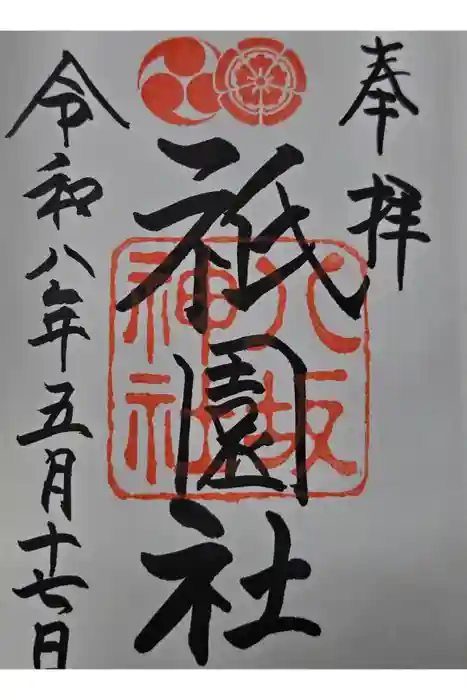 奉拝
祇園社
八坂
神社
令和八年五月十七日